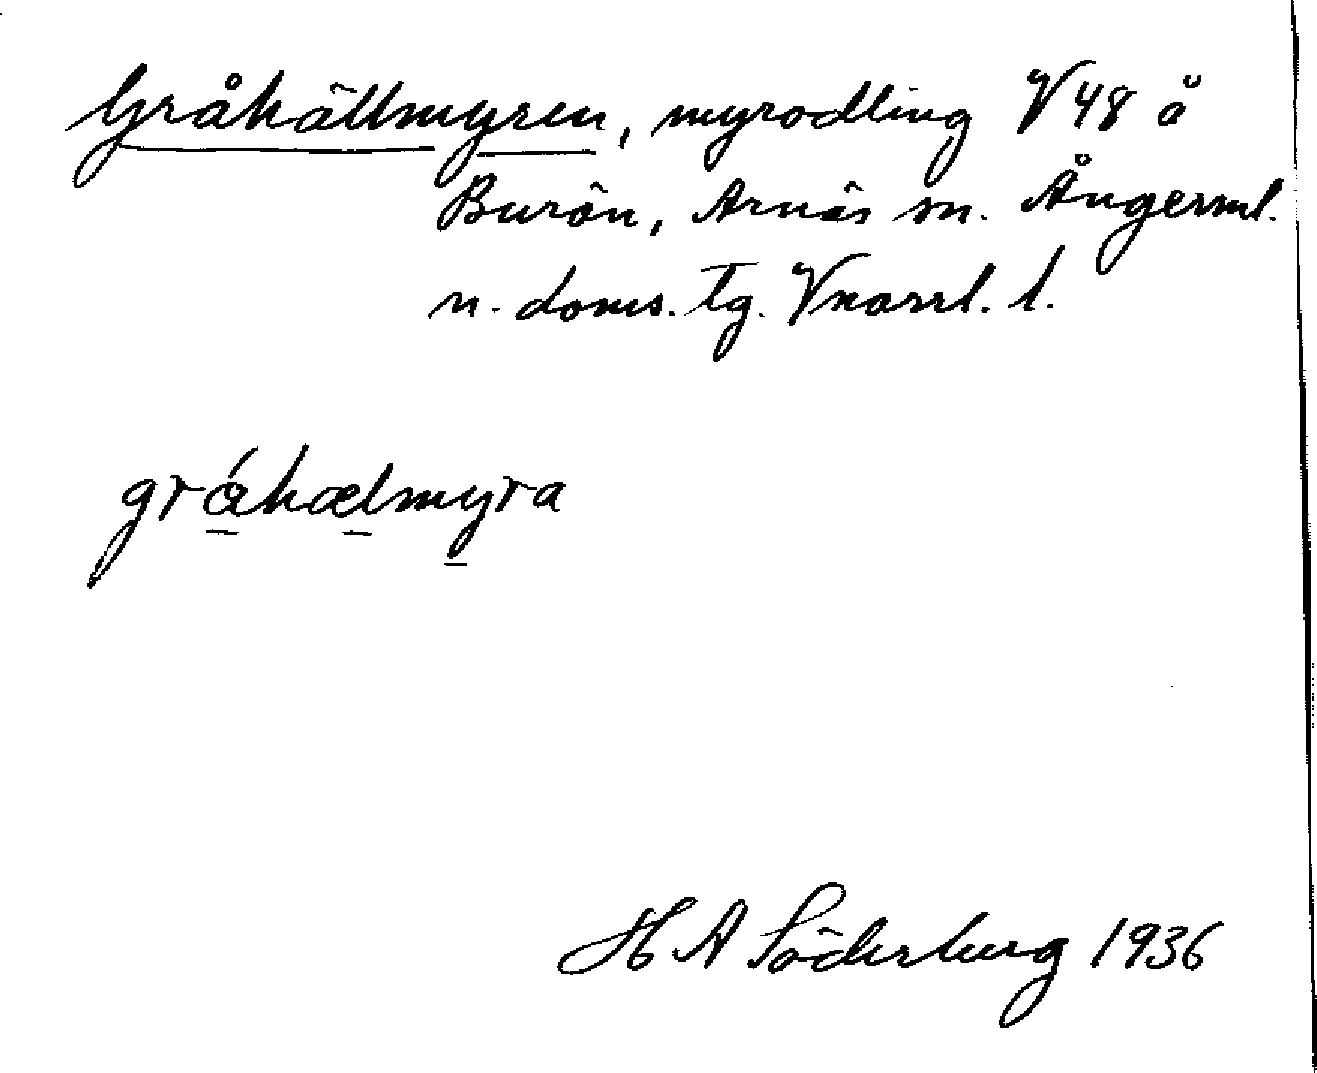 Gråhällmyren, myrodling V 48 å
Burön, Arnäs sn. Ångerml.
n. doms. tg. Vnorrl. l.
grǻhælmyra
H A Söderberg 1936